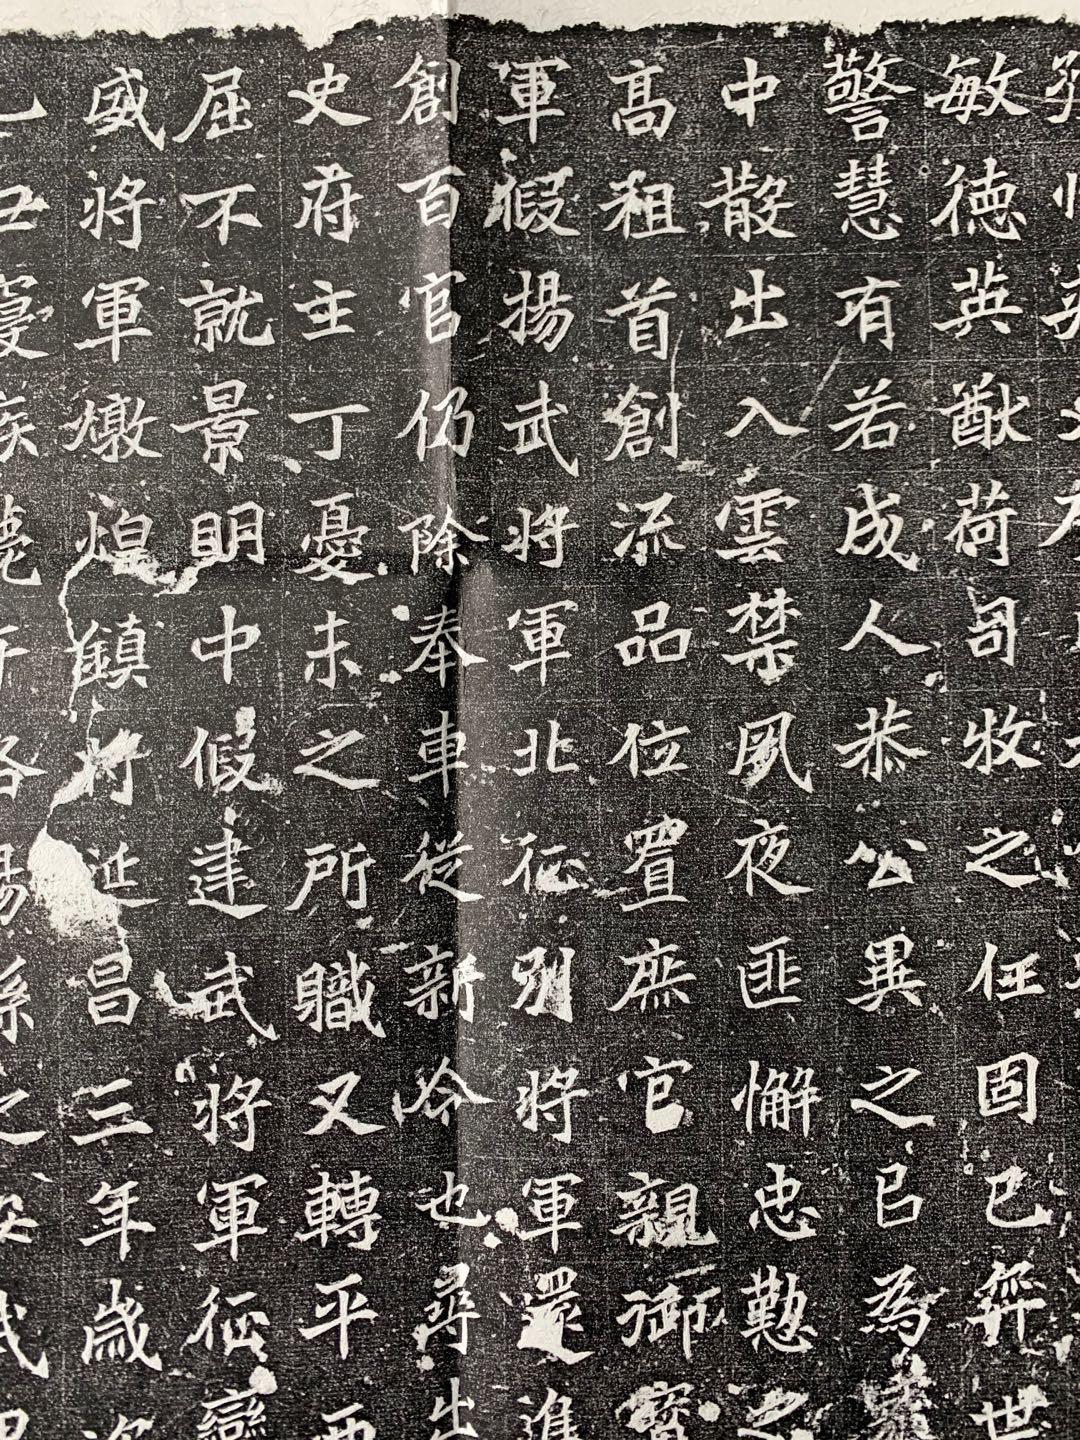 敏德英猷荷司牧之任固已弈世
警慧有若成人恭公異之已為
中散出入雲禁夙夜匪懈忠勤之
高祖首創流品位置庶官親御寶
軍假揚武將軍北征別將軍還進
創百官仍除奉車從新令也尋出
史府主丁憂未之所職又轉平西
屈不就景明中假建武將軍征蠻
威將軍燉煌鎮將延昌三年歲次
丑寢疾薨于洛陽縣之安武里